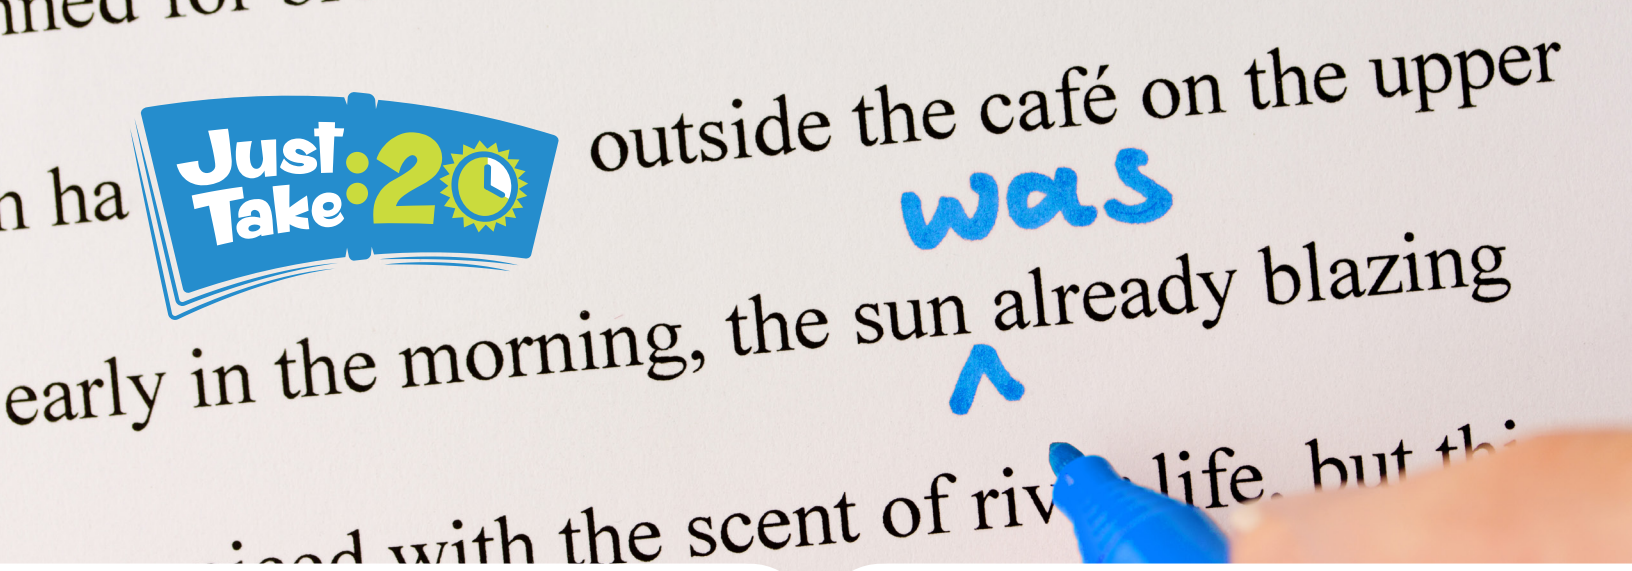 for
ha
Just
Take :20
outside the café on the upper
was
early in the morning, the sun already blazing
^
with the scent of life, but